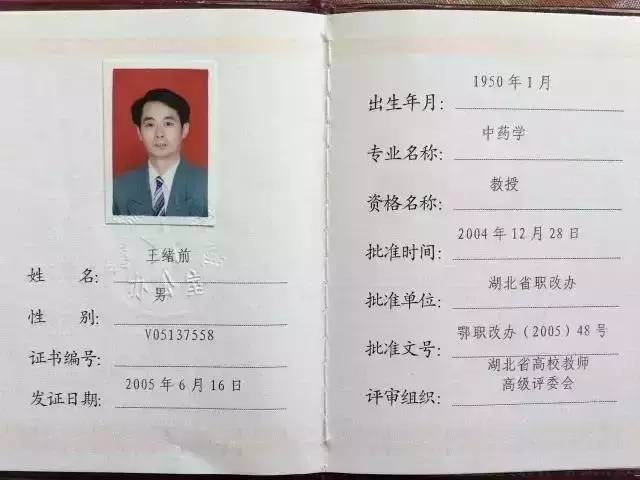 姓 名: 王绪前
性 别: 男
证书编号: V05137558
发证日期: 2005 年 6 月 16 日
出生年月: 1950 年 1 月
专业名称: 中药学
资格名称: 教授
批准时间: 2004 年 12 月 28 日
批准单位: 湖北省职改办
批准文号: 鄂职改办（2005）48 号
评审组织: 湖北省高校教师
高级评委会